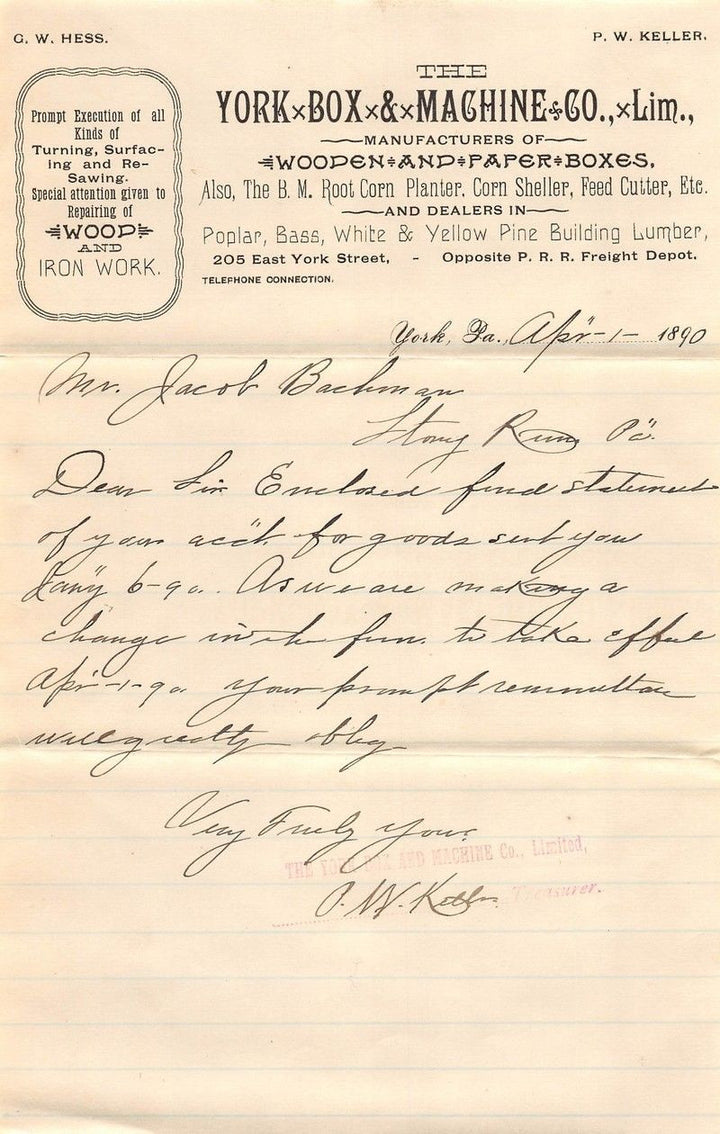 G. W. HESS.
P. W. KELLER.
Prompt Execution of all
Kinds of
Turning, Surfac-
ing and Re-
Sawing.
Special attention given to
Repairing of
WOOD
AND
IRON WORK.
THE
YORK BOX & MACHINE CO., Lim.,
MANUFACTURERS OF
WOODEN AND PAPER BOXES,
Also, The B. M. Root Corn Planter, Corn Sheller, Feed Cutter, Etc.
AND DEALERS IN
Poplar, Bass, White & Yellow Pine Building Lumber,
205 East York Street, - Opposite P. R. R. Freight Depot.
TELEPHONE CONNECTION.
York, Pa., Apr-1- 1890
Mr. Jacob Bachman
Stony Run Pa.
Dear Sir Enclosed find statement
of your acc't for goods sent you
Jany 6-90. As we are making a
change in the firm to take effect
Apr-1-90 your prompt remmittance
will greatly oblig
Very Truly Yours
THE YORK BOX AND MACHINE Co., Limited,
P. W. Keller Treasurer.